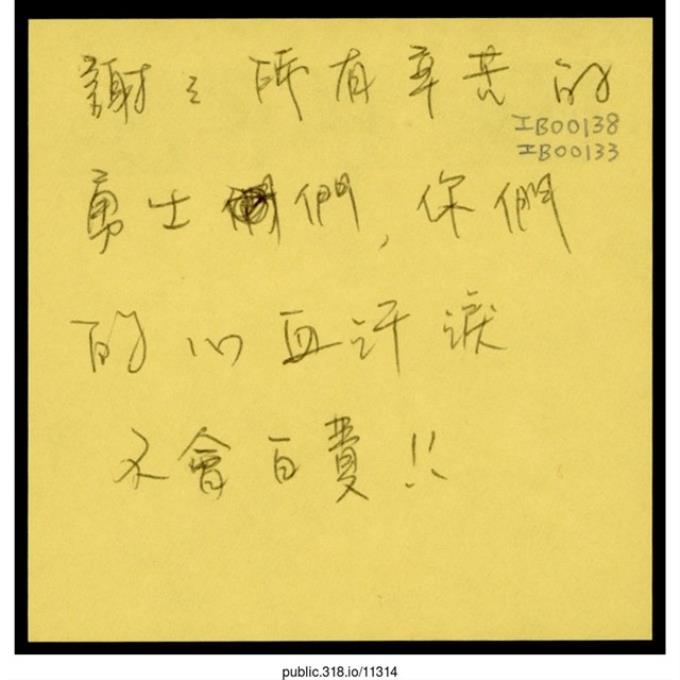 謝々所有辛苦的
IB00138
IB00133
勇士們，你們
的心血汗淚
不會白費!!
public.318.io/11314